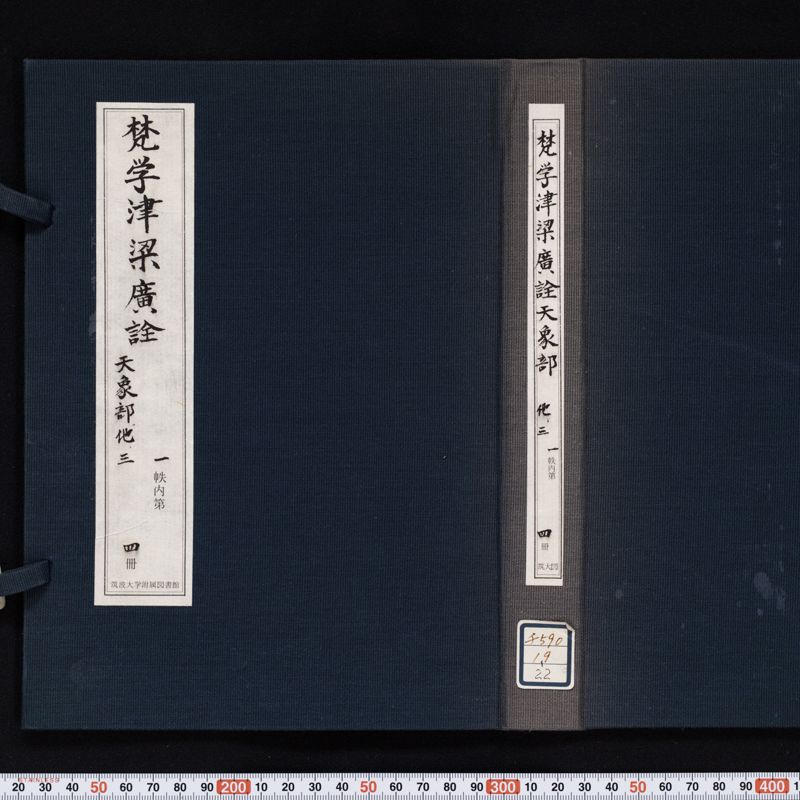 梵学津梁廣詮
天象部他三
一帙内第四冊
筑波大学附属図書館
梵学津梁廣詮天象部
他三
一帙内第四冊
筑大図
チ590
1.9
22
STAINLESS
20 30 40 50 60 70 80 90 200 10 20 30 40 50 60 70 80 90 300 10 20 30 40 50 60 70 80 90 400